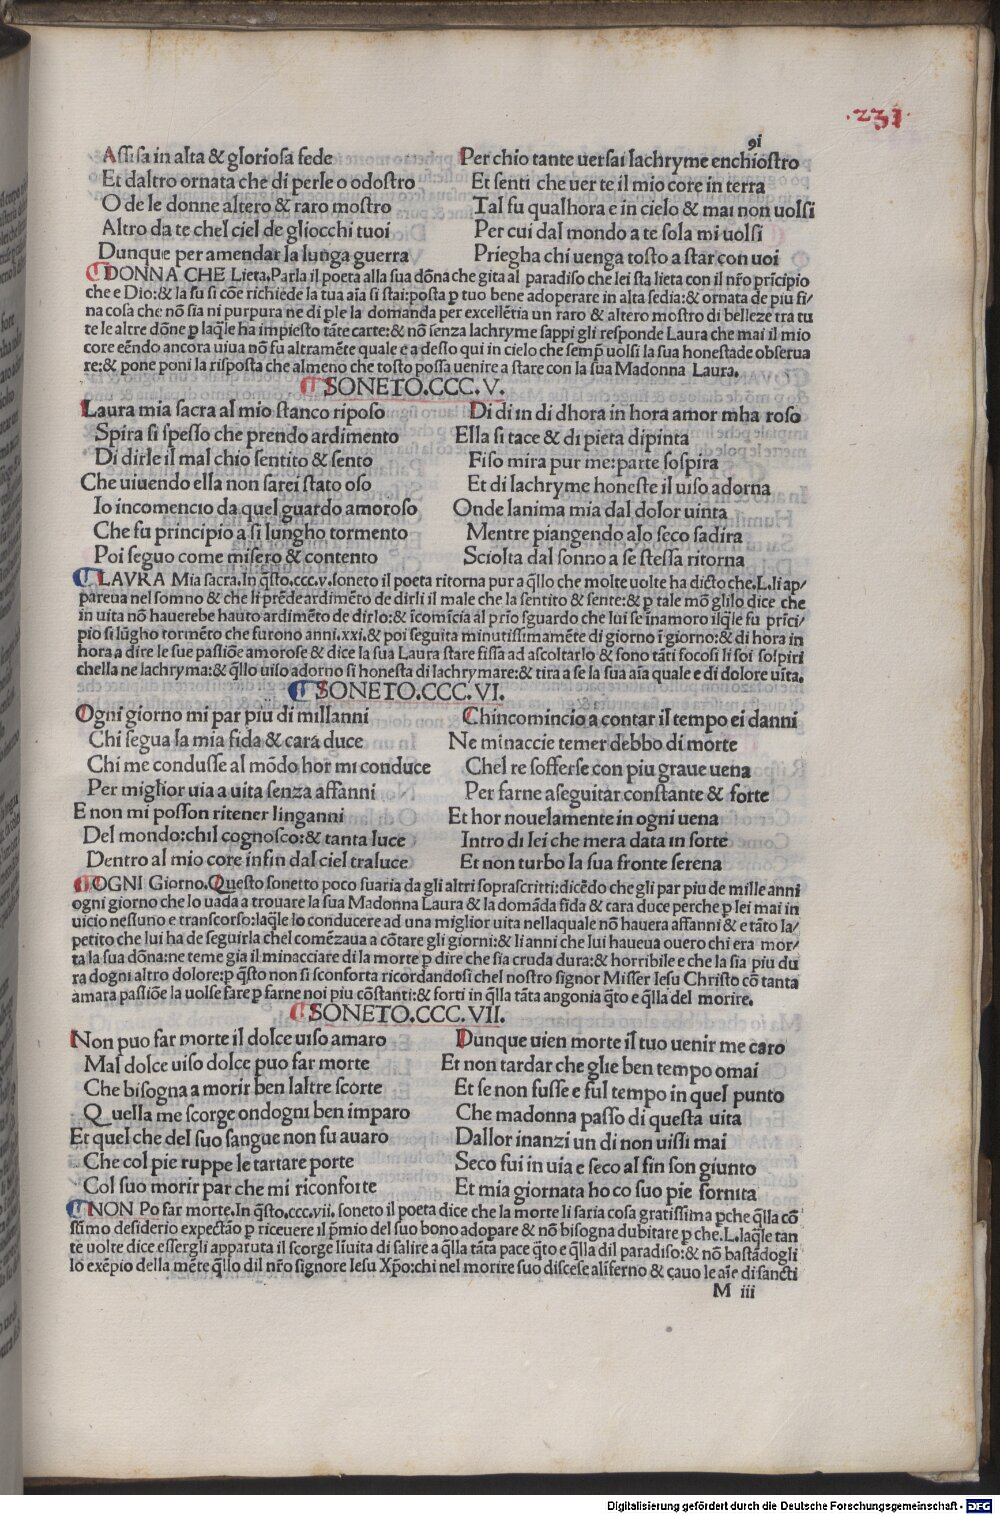 .231.
91
Assisa in alta & gloriosa sede
Et daltro ornata che di perle o odostro
O de le donne altero & raro mostro
Altro da te chel ciel de gliocchi tuoi
Dunque per amendar la lunga guerra
Per chio tante uersai lachryme enchiostro
Et senti che uer te il mio core in terra
Tal fu qualhora e in cielo & mai non uolsi
Per cui dal mondo a te sola mi uolsi
Priegha chi uenga tosto a star con uoi
DONNA CHE Lieta. Parla il poeta alla sua dōna che gita al paradiso che lei sta lieta con il nr̄o prīcipio
che e Dio: & la su si cōe richiede la tua aīa si stai: posta p̱ tuo bene adoperare in alta sedia: & ornata de piu fi/
na cosa che nō sia ni purpura ne di p̱le la domanda per excellētia un raro & altero mostro di belleze tra tu
te le altre dōne p̱ laq̄le ha impiesto tāte carte: & nō senza lachryme sappi gli responde Laura che mai il mio
core eēndo ancora uiua nō fu altramēte quale e a desso qui in cielo che semp̄ uolsi la sua honestade obserua
re: & pone poni la risposta che almeno che tosto possa uenire a stare con la sua Madonna Laura.
SONETO.CCC.V.
Laura mia sacra al mio stanco riposo
Spira si spesso che prendo ardimento
Di dirle il mal chio sentito & sento
Che uiuendo ella non sarei stato oso
Io incomencio da quel guardo amoroso
Che fu principio a si lungho tormento
Poi seguo come misero & contento
Di di in di dhora in hora amor mha roso
Ella si tace & di pieta dipinta
Fiso mira pur me: parte sospira
Et di lachryme honeste il uiso adorna
Onde lanima mia dal dolor uinta
Mentre piangendo alo seco sadira
Sciolta dal sonno a se stessa ritorna
LAVRA Mia sacra. In q̄sto .ccc.v. soneto il poeta ritorna pur a q̄llo che molte uolte ha dicto che .L. li ap/
pareua nel somno & che li prēde ardimēto de dirli il male che la sentito & sente: & p̱ tale mō glilo dice che
in uita nō hauerebe hauto ardimēto de dirlo: & īcomīcia al prīo sguardo che lui se inamoro ilq̄le fu prīci/
pio si lūgho tormēto che furono anni .xxi. & poi seguita minutissimamēte di giorno ī giorno: & di hora in
hora a dire le sue passiōe amorose & dice la sua Laura stare fissa ad ascoltarlo & sono tāti focosi li soi sospiri
chella ne lachryma: & q̄llo uiso adorno si honesta di lachrymare: & tira a se la sua aīa quale e di dolore uita.
SONETO.CCC.VI.
Ogni giorno mi par piu di millanni
Chi segua la mia fida & cara duce
Chi me condusse al mōdo hor mi conduce
Per miglior uia a uita senza affanni
E non mi posson ritener linganni
Del mondo: chil cognosco: & tanta luce
Dentro al mio core infin dal ciel traluce
Chincomincio a contar il tempo ei danni
Ne minaccie temer debbo di morte
Chel re sofferse con piu graue uena
Per farne aseguitar constante & forte
Et hor nouelamente in ogni uena
Intro di lei che mera data in sorte
Et non turbo la sua fronte serena
OGNI Giorno. Questo sonetto poco suaria da gli altri soprascritti: dicēdo che gli par piu de mille anni
ogni giorno che lo uada a trouare la sua Madonna Laura & la domāda fida & cara duce perche p̱ lei mai in
uicio nessuno e transcorso: laq̄le lo conducere ad una miglior uita nellaquale nō hauera affanni & e tāto la/
petito che lui ha de seguirla chel comēzaua a cōtare gli giorni: & li anni che lui haueua ouero chi era mor/
ta la sua dōna: ne teme gia il minacciare di la morte p̱ dire che sia cruda dura: & horribile e che la sia piu du
ra dogni altro dolore: p̱ q̄sto non si sconforta ricordandosi chel nostro signor Misser Iesu Christo cō tanta
amara passiōe la uolse fare p̱ farne noi piu cōstanti: & forti in q̄lla tāta angonia q̄to e q̄lla del morire.
SONETO.CCC.VII.
Non puo far morte il dolce uiso amaro
Mal dolce uiso dolce puo far morte
Che bisogna a morir ben laltre scorte
Quella me scorge ondogni ben imparo
Et quel che del suo sangue non fu auaro
Che col pie ruppe le tartare porte
Col suo morir par che mi riconforte
Dunque uien morte il tuo uenir me caro
Et non tardar che glie ben tempo omai
Et se non fusse e ful tempo in quel punto
Che madonna passo di questa uita
Dallor inanzi un di non uissi mai
Seco fui in uia e seco al fin son giunto
Et mia giornata ho co suo pie fornita
NON Po far morte. In q̄sto .ccc.vii. soneto il poeta dice che la morte li saria cosa gratissima p̱che q̄lla cō
sūmo desiderio expectāo p̱ riceuere il p̄mio del suo bono adopare & nō bisogna dubitare p̱ che .L. laq̄le tan
te uolte dice essergli apparuta il scorge līuita di salire a q̄lla tāta pace q̄to e q̄lla dil paradiso: & nō bastādogli
lo exēpio della mēte q̄llo dil nr̄o signore Iesu Xp̄o: chi nel morire suo discese alīferno & cauo le aīe di sancti
M iii
Digitalisierung gefördert durch die Deutsche Forschungsgemeinschaft - DFG